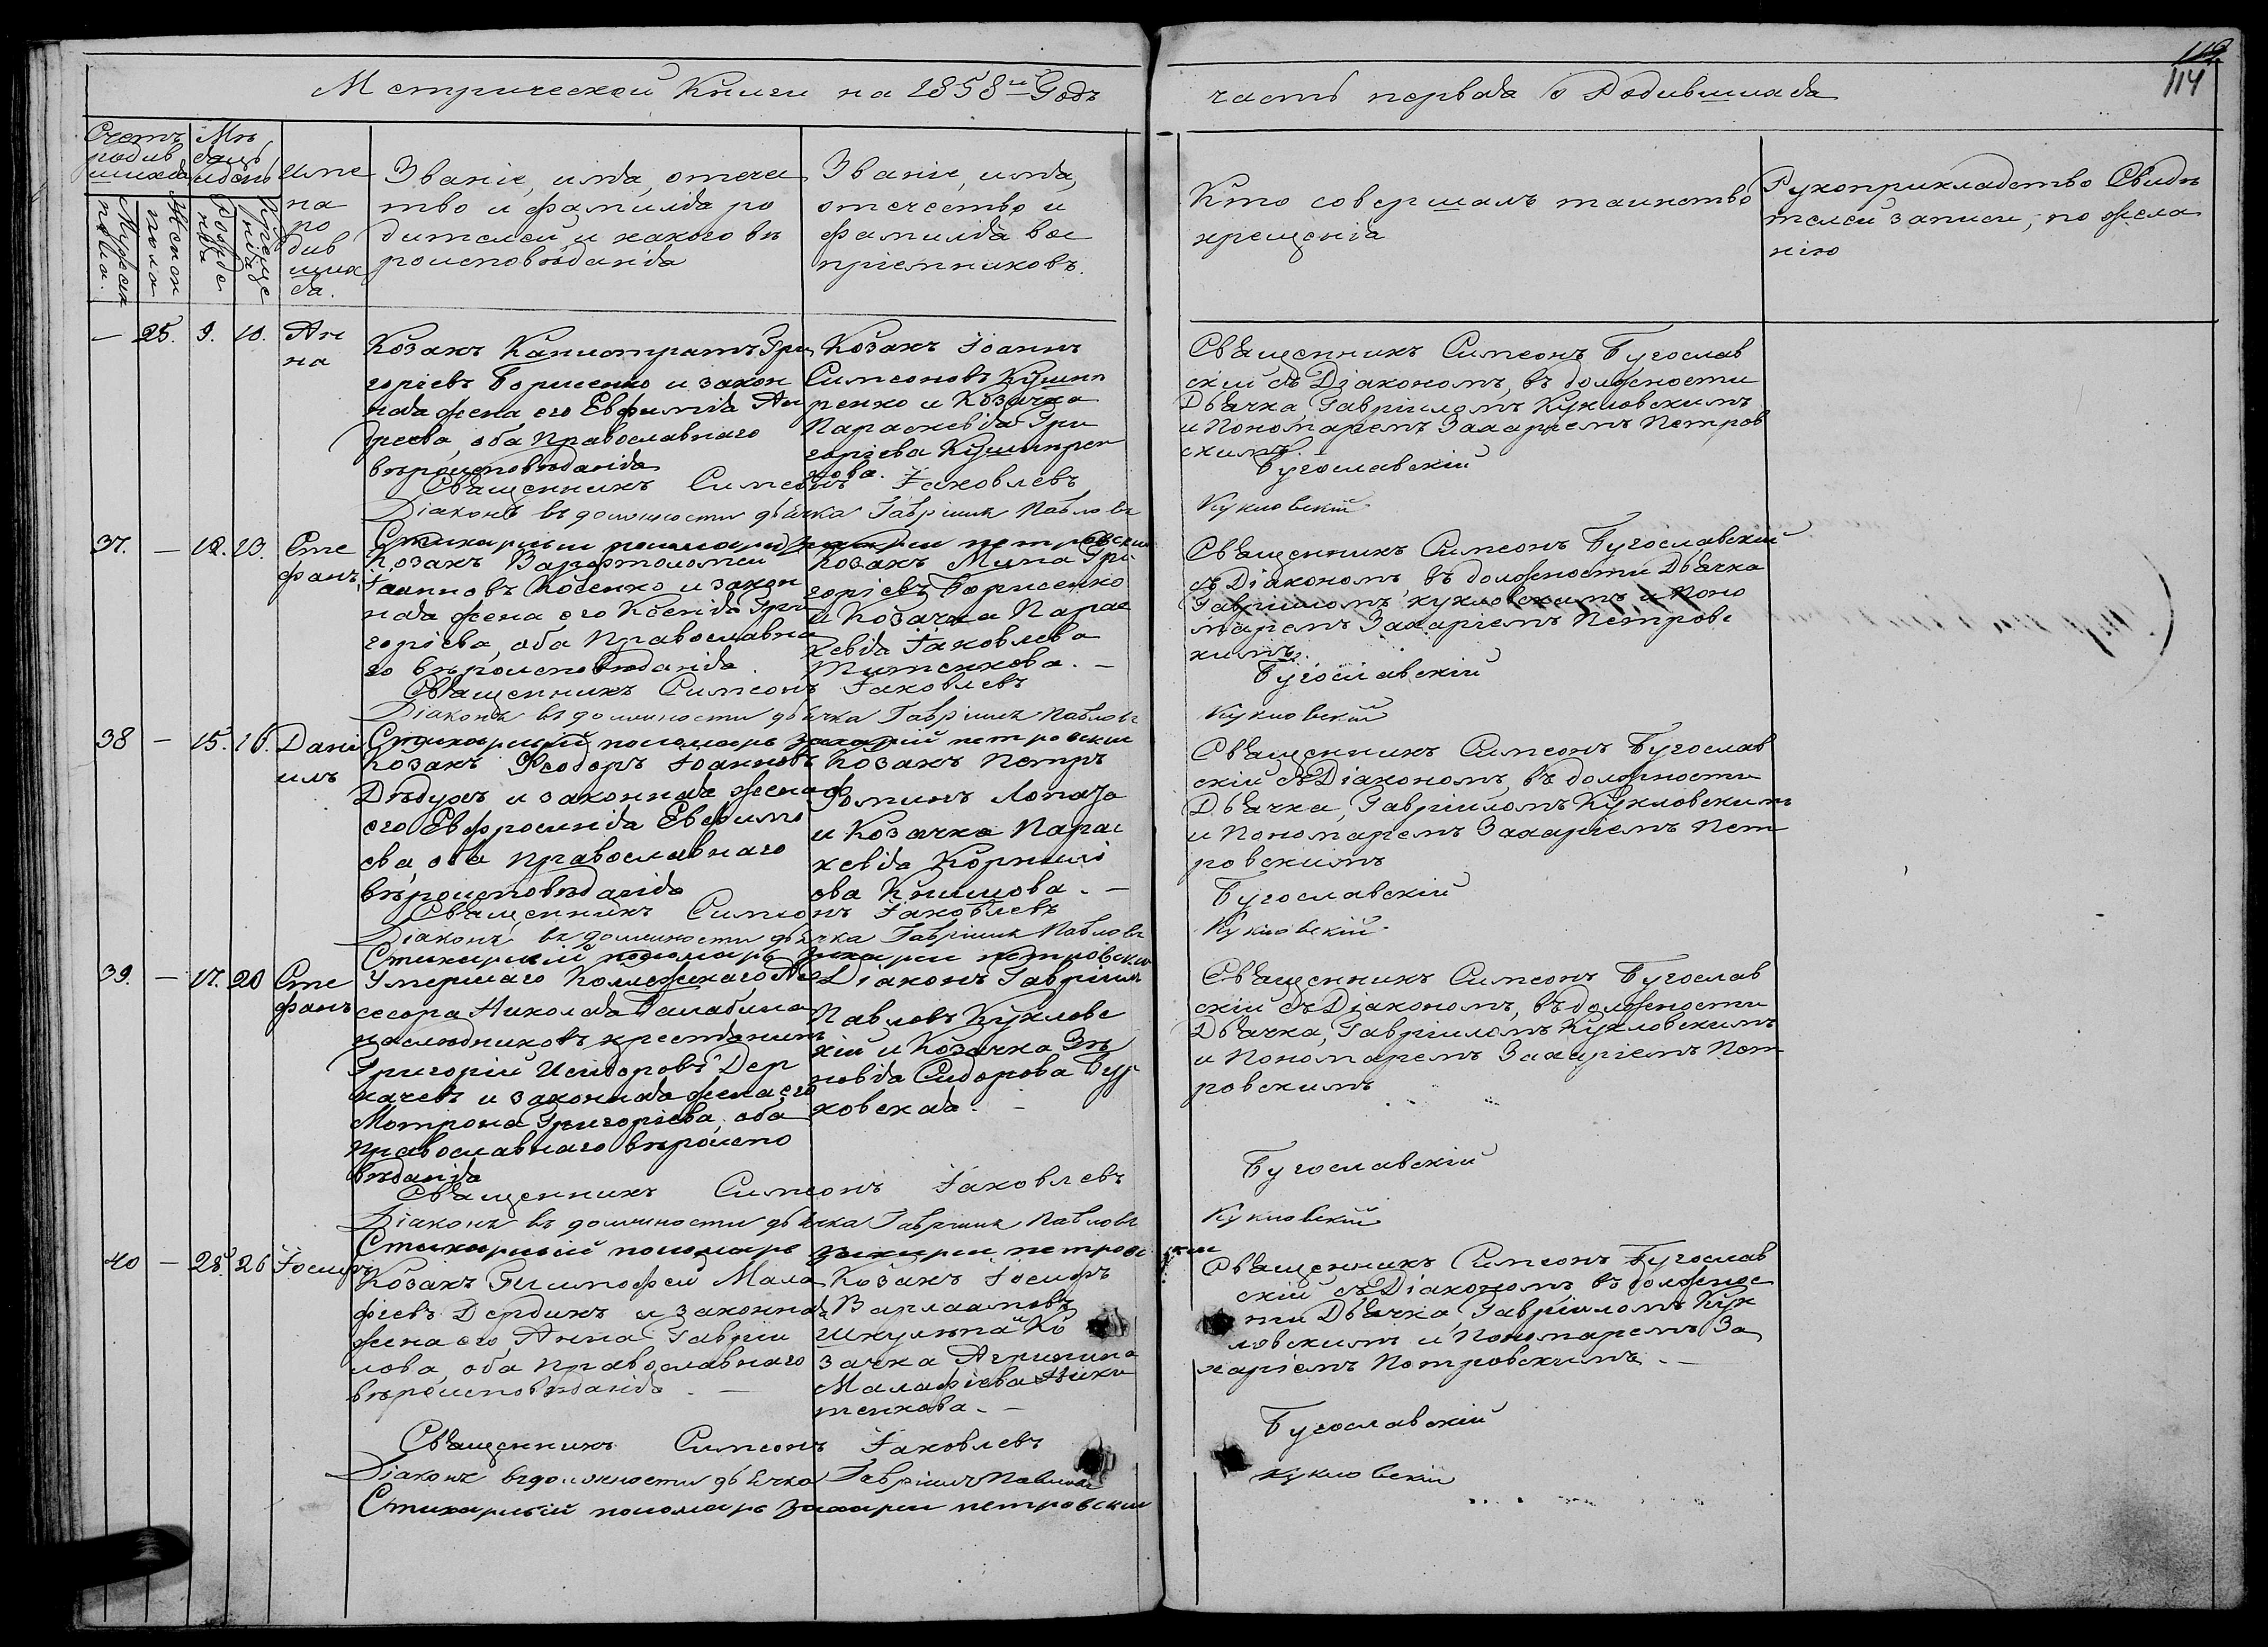 Метрической Книги на 1858й Годъ
часть первая о Родившихся
113
114
Счетъ родив шихся
Мѣ сяцъ и день
Мужеск пола.
Женск пола
Рожде нія
Креще нія
Име на ро див ших ся.
Званіе, имя, отече
ство и фамилія ро
дителей, и какого вѣ
роисповѣданія
Званіе, имя,
отечество и
фамилія вос
пріемниковъ.
Кто совершалъ таинство
крещенія
Рукоприкладство Свидѣ
телей записи, по жела
нію
— 25. 9. 10. Ан
на
Козакъ Калистратъ Гри
горіевъ Борисенко и закон
ная жена его Евфимія Ан
дреева, оба Православнаго
вѣроисповѣданія
Козакъ Іоаннъ
Симеоновъ
и Козачка
Параскевія Гри
горіева
Священникъ Симеонъ Бугослав
скій съ Діакономъ, въ должности
Дьячка, Гавріиломъ Кукловскимъ
и Пономаремъ Захаріемъ Петров
скимъ.
Священникъ Симеонъ Іаковлевъ Бугославскій
Діаконъ въ должности дьячка Гавріилъ Павловъ Кукловскій
Стихарный пономарь Захарий петровский
37. — 12. 13. Сте
фанъ
Козакъ Варфоломей
Іоанновъ Косенко и закон
ная жена его Ксенія Гри
горіева, оба Православна
го вѣроисповѣданія.
Козакъ Мина Гри
горіевъ Борисенко
и Козачка Парас
кевія Іаковлева
Титенкова. —
Священникъ Симеонъ Бугославскій
съ Діакономъ, въ должности Дьячка
Гавріиломъ Кукловскимъ и Поно
маремъ Захаріемъ Петровс
кимъ.
Священникъ Симеонъ Іаковлевъ Бугославскій
Діаконъ въ должности дьячка Гавріилъ Павловъ Кукловскій
Стихарный пономарь захарий петровский
38 — 15. 16. Дані
илъ
Козакъ Ѳеодоръ Іоанновъ
Дѣдухъ и законная жена
его Евфросинія Евфимо
ева, оба Православнаго
вѣроисповѣданія
Козакъ Петръ
Фоминъ Лопата
и Козачка Парас
кевія Корнилі
ева Климова. —
Священникъ Симеонъ Бугослав
скій съ Діакономъ, въ должности
Дьячка, Гавріиломъ Кукловскимъ
и Пономаремъ Захаріемъ Пет
ровскимъ
Священникъ Симеонъ Іаковлевъ Бугославскій
Діаконъ въ должности дьячка Гавріилъ Павловъ Кукловскій
Стихарный пономарь захарий петровский
39. — 17. 20 Сте
фанъ
Умершаго Коллежскаго Ас
сесора Николая
наслѣдниковъ, крестьянинъ
Григорій Исидоровъ Дер
качевъ и законная жена его
Мотрона Григоріева, оба
Православнаго вѣроиспо
вѣданія
Діаконъ Гавріилъ
Павловъ Кукловс
кій и Козачка Зѣ
новія Сидорова Бур
ковская. —
Священникъ Симеонъ Бугослав
скій съ Діакономъ, въ должности
Дьячка, Гавріиломъ Кукловскимъ
и Пономаремъ Захаріемъ Пет
ровскимъ
Священникъ Симеонъ Іаковлевъ Бугославскій
Діаконъ въ должности дьячка Гавріилъ Павловъ Кукловскій
Стихарный пономарь захарии петровский
40 — 25. 26 Іосифъ
Козакъ Тимофей Мала
фіевъ Дердикъ и законная
жена его, Анна Гавріи
лова, оба Православнаго
вѣроисповѣданія. —
Козакъ Іосифъ
Варлаамовъ
Шкулѣпа и Ко
зачка Агрипина
Малафіева Ники
тенкова. —
Священникъ Симеонъ Бугослав
скій съ Діакономъ въ должнос
ти Дьячка, Гавріиломъ Кук
ловскимъ и Пономаремъ За
харіемъ Петровскимъ. —
Священникъ Симеонъ Іаковлевъ Бугославскій
Діаконъ въ должности дьячка Гавріилъ Павловъ Кукловскій
Стихарный пономарь захарии петровский